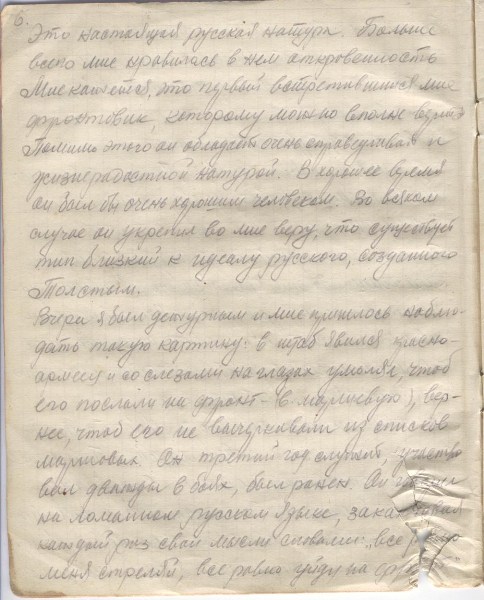 6.
Это настоящая русская натура. Больше
всего мне нравилась в нем откровенность
Мне кажется, что первый встретившийся мне
фронтовик, которому можно вполне верить
Помимо этого он обладает очень справедливой и
жизнерадостной натурой. В хорошее время
он был бы очень хорошим человеком. Во всяком
случае он укрепил во мне веру, что существует
тип близкий к идеалу русского, созданного
Толстым.
Вчера я был дежурным и мне пришлось наблю-
дать такую картину: в штаб явился красно-
армеец и со слезами на глазах умолял, чтоб
его послали на фронт (в маршевую), вер-
нее, чтоб его не вычеркивали из списков
маршевых. Он третий год служит, участво
вал дважды в боях, был ранен. Он
на ломанном русском языке,
каждый раз свои мысли словами: „все равно
меня стреляй, все равно уйду на